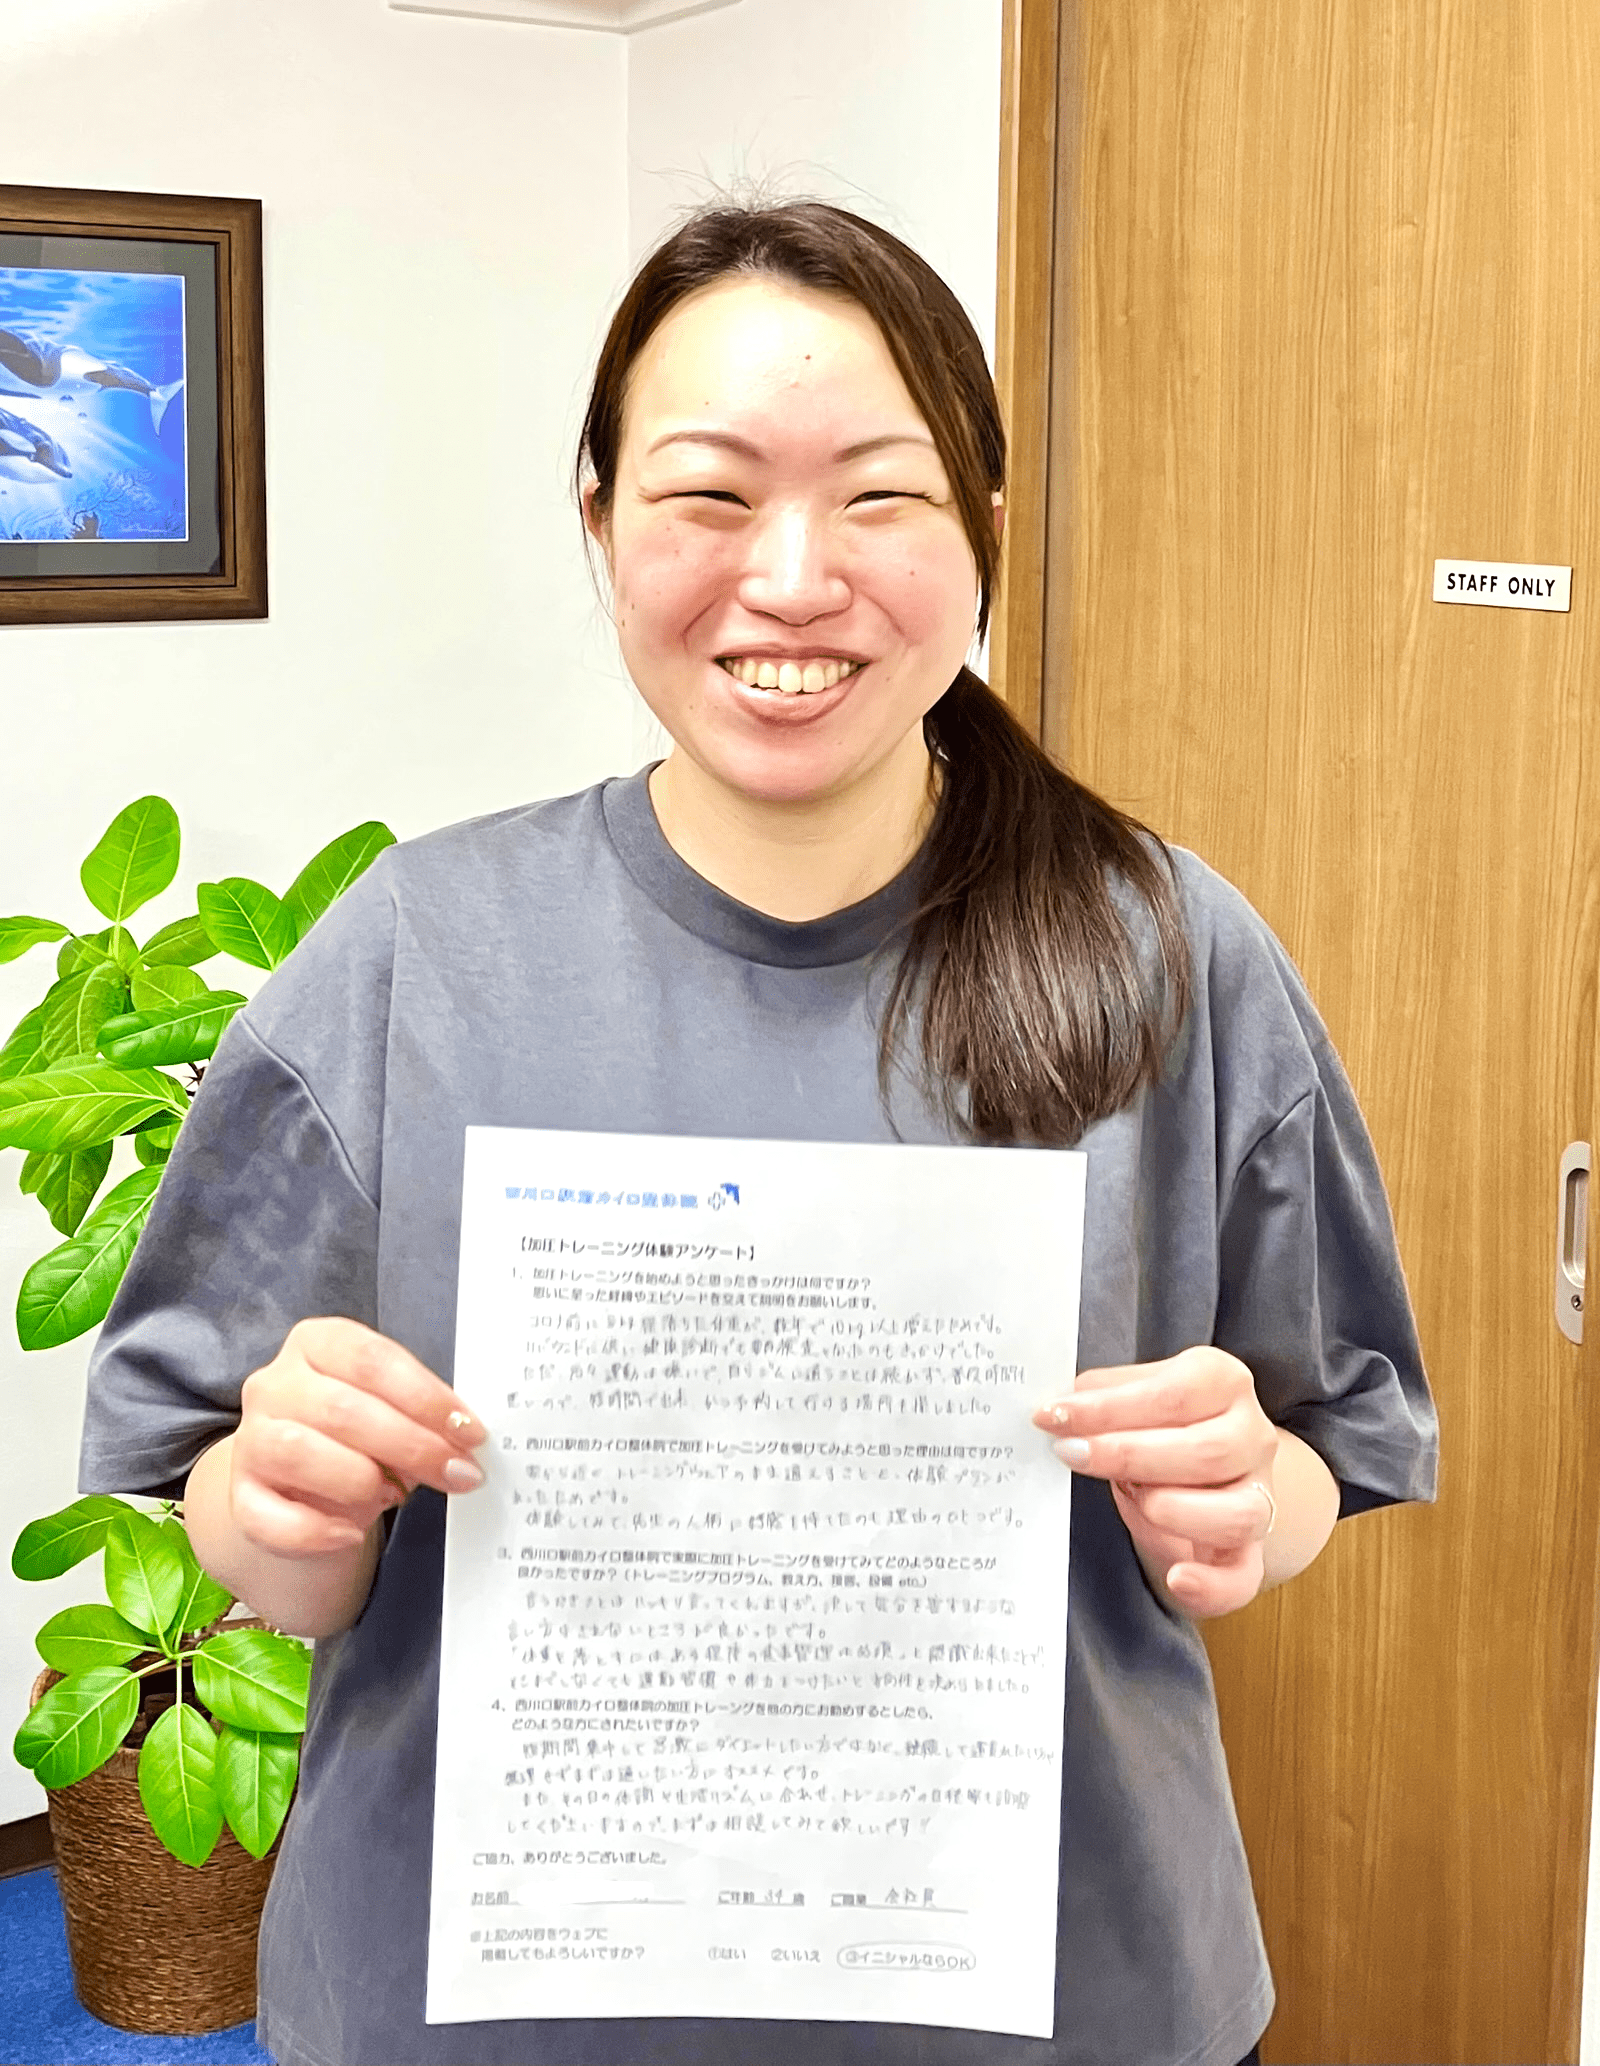 STAFF ONLY
西川口駅前カイロ整体院
【加圧トレーニング体験アンケート】
1、加圧トレーニングを始めようと思ったきっかけは何ですか？
思いに至った経緯やエピソードを交えて説明をお願いします。
コロナ前に 落した体重が、数年で10kg以上増えたためです。
リバウンドに伴い、健康診断でも要再検査となったのもきっかけでした。
ただ、元々運動は嫌いで、自らジムに通うことは続かず、普段時間も
ないので、短時間で出来、かつ予約して行ける場所を探しました。
2、西川口駅前カイロ整体院で加圧トレーニングを受けてみようと思った理由は何ですか？
家から近く、トレーニングウェアのまま通えることと、体験プランが
あったためです。
体験してみて、先生の人柄に好感を持てたのも理由のひとつです。
3、西川口駅前カイロ整体院で実際に加圧トレーニングを受けてみてどのようなところが
良かったですか？（トレーニングプログラム、教え方、接客、設備 etc.）
言うべきことはハッキリ言ってくれますが、決して気分を害するような
言い方をされないところが良かったです。
体重を落とすにはある程度の食事管理は必須、と認識出来たことで、
そこまでしなくても運動習慣や体力をつけたいと方向性を決められました。
4、西川口駅前カイロ整体院の加圧トレーニングを他の方にお勧めするとしたら、
どのような方にされたいですか？
短期間集中して急激にダイエットしたい方ではなく、継続して運動したい方や
無理せずまずは通いたい方にオススメです。
また、その日の体調や生活リズムに合わせ、トレーニングの日程等も調整
してくださいますので、まずは相談してみて欲しいです!!
ご協力、ありがとうございました。
お名前 ご年齢 34 歳 ご職業 会社員
※上記の内容をウェブに
掲載してもよろしいですか？ ①はい ②いいえ ③イニシャルならOK